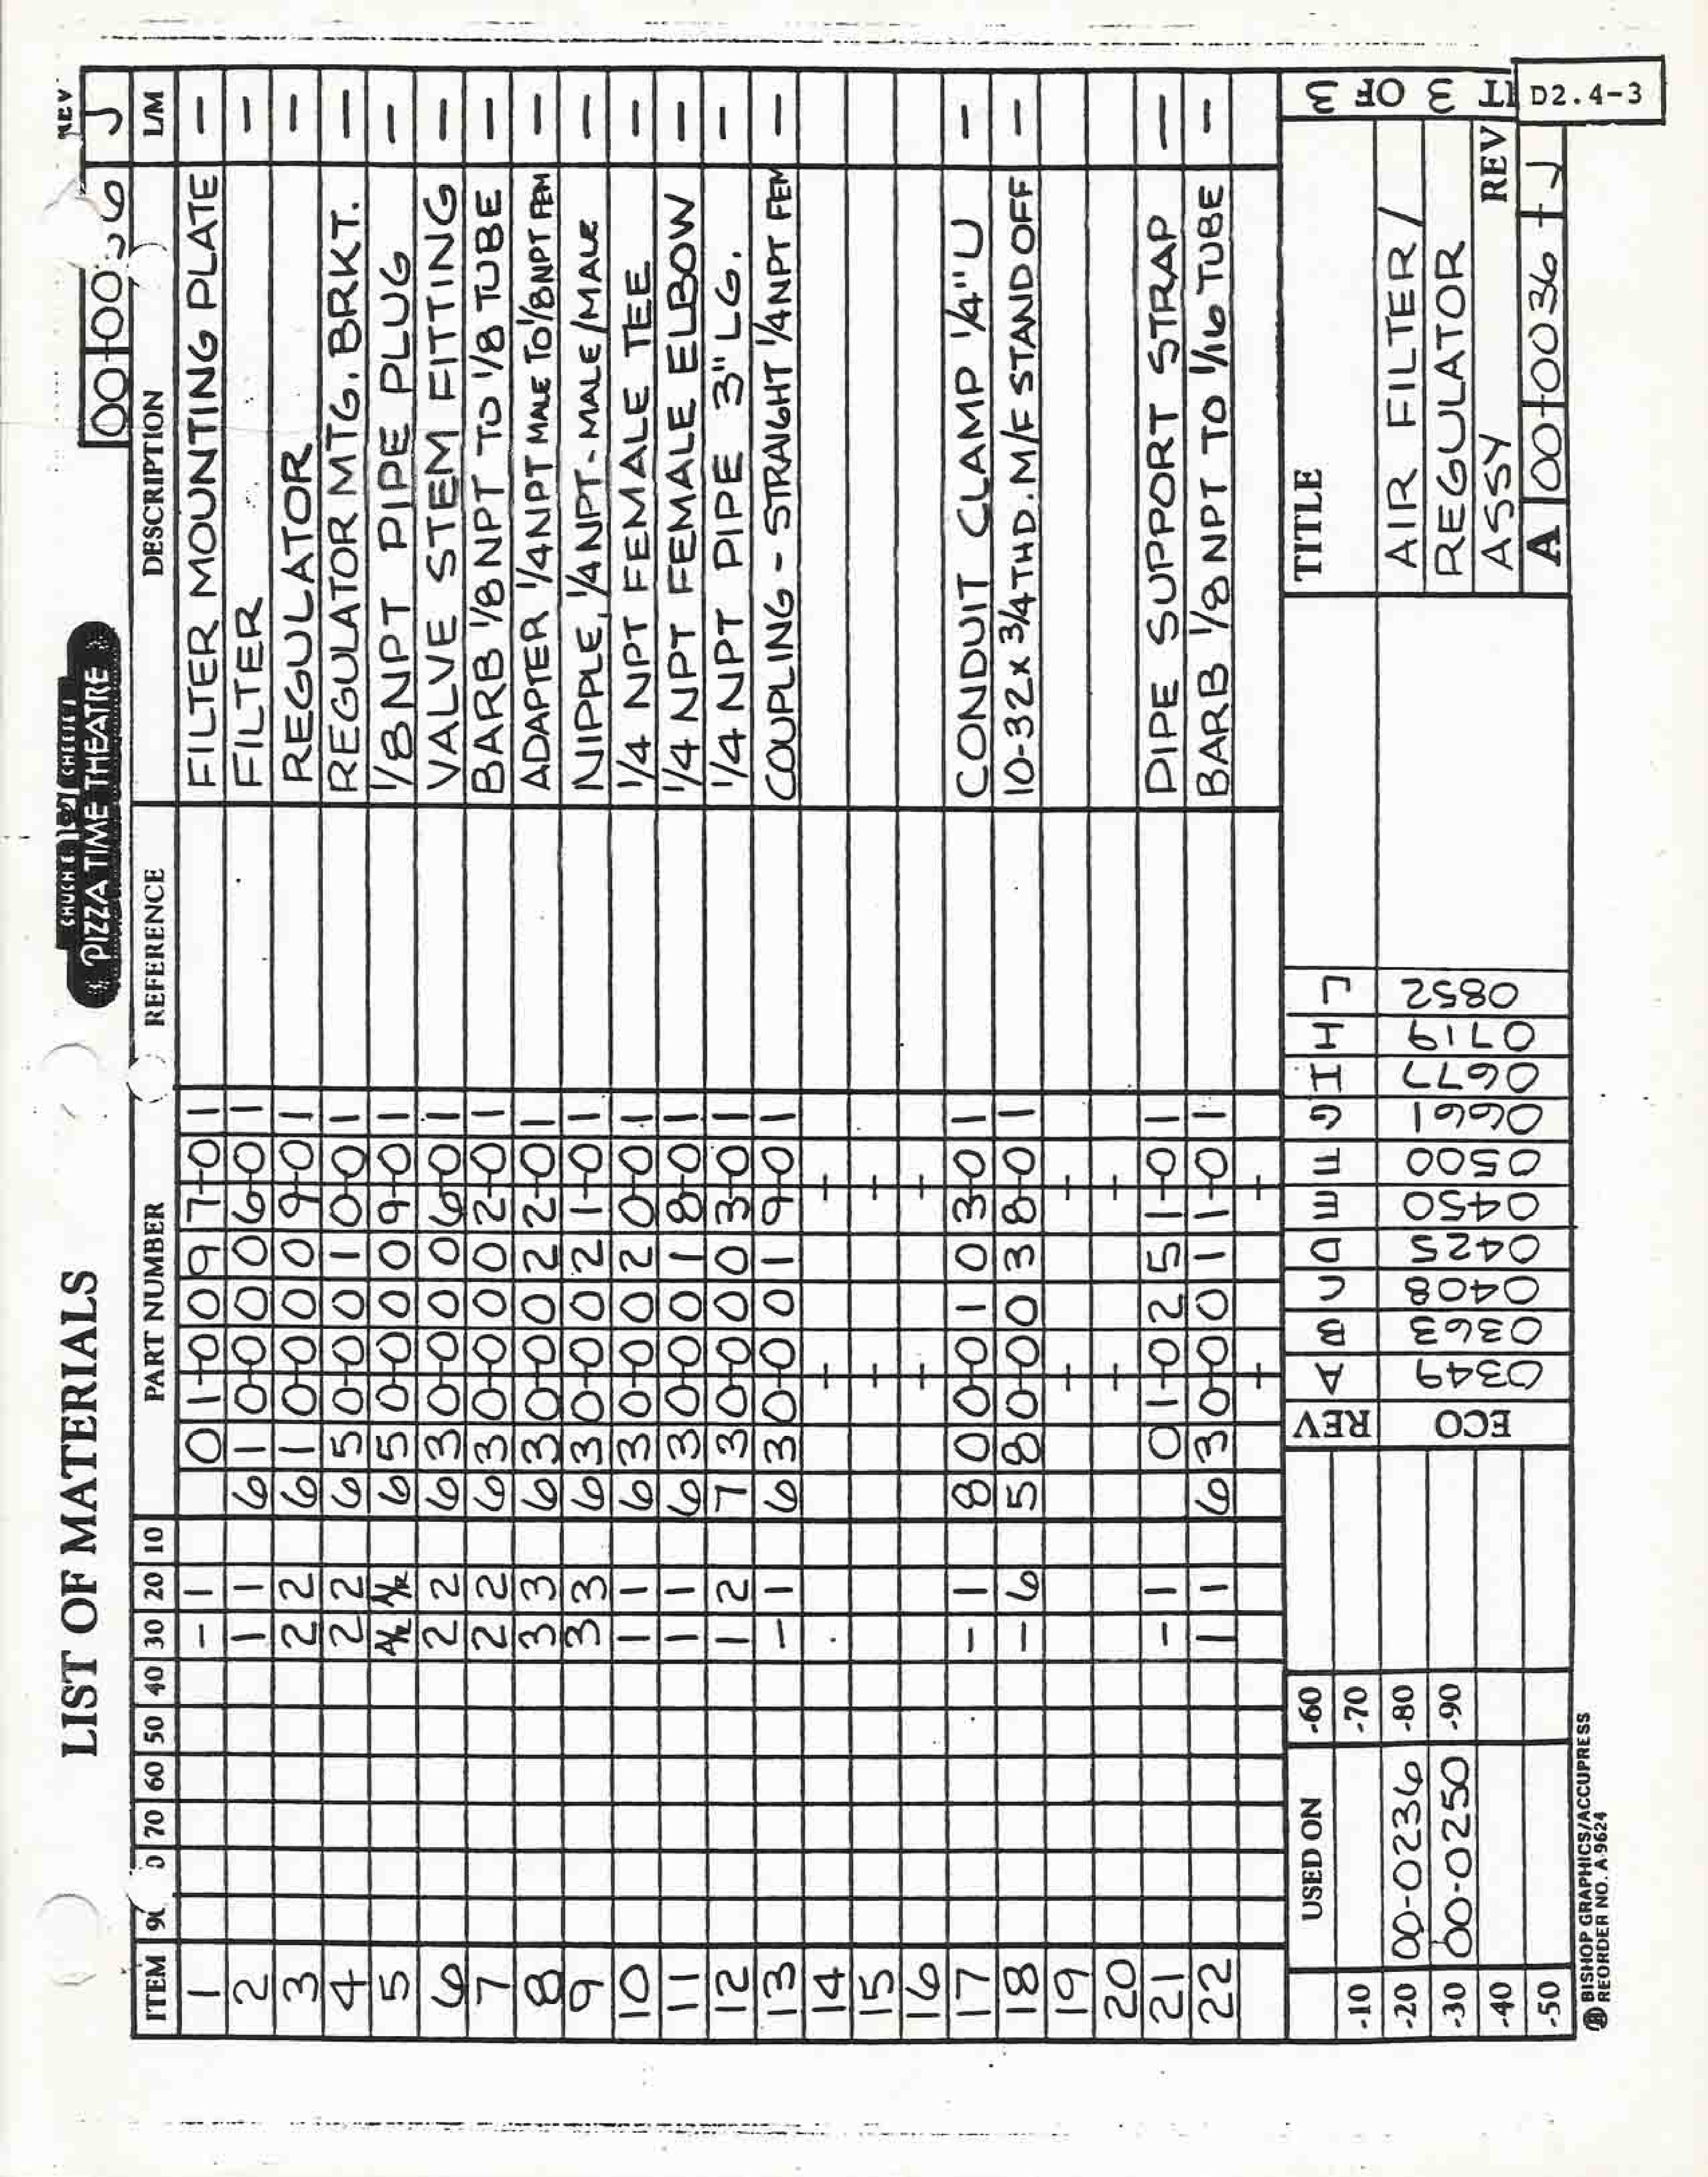 LIST OF MATERIALS
CHUCK E. CHEESE'S
PIZZA TIME THEATRE
REV
00-0036 J
ITEM 70 60 50 40 30 20 10 PART NUMBER REFERENCE DESCRIPTION L/M
1 – 1 01-0097-01 FILTER MOUNTING PLATE –
2 1 1 610-0006-01 FILTER –
3 2 2 610-0009-01 REGULATOR –
4 2 2 650-0010-01 REGULATOR MTG. BRKT. –
5 A/R A/R 650-0009-01 1/8 NPT PIPE PLUG –
6 2 2 630-0006-01 VALVE STEM FITTING –
7 2 2 630-0002-01 BARB 1/8 NPT TO 1/8 TUBE –
8 3 3 630-0022-01 ADAPTER 1/4 NPT MALE TO 1/8 NPT FEM –
9 3 3 630-0021-01 NIPPLE, 1/4 NPT - MALE/MALE –
10 1 1 630-0020-01 1/4 NPT FEMALE TEE –
11 1 1 630-0018-01 1/4 NPT FEMALE ELBOW –
12 1 2 730-0003-01 1/4 NPT PIPE 3" LG. –
13 – 1 630-0019-01 COUPLING - STRAIGHT 1/4 NPT FEM –
14
15
16
17 – 1 800-0103-01 CONDUIT CLAMP 1/4" U –
18 – 6 580-0038-01 10-32 x 3/4 THD. M/F STANDOFF –
19
20
21 – 1 01-0251-01 PIPE SUPPORT STRAP –
22 1 1 630-0011-01 BARB 1/8 NPT TO 1/16 TUBE –
USED ON -60
-10 -70
-20 00-0236 -80
-30 00-0250 -90
-40
-50
REV A B C D E F G I H J
ECO 0349 0363 0408 0425 0450 0500 0661 0677 0719 0852
TITLE
AIR FILTER /
REGULATOR
ASSY REV
A 00-0036 J
3 OF 3
D2.4-3
BISHOP GRAPHICS/ACCUPRESS
REORDER NO. A-9624